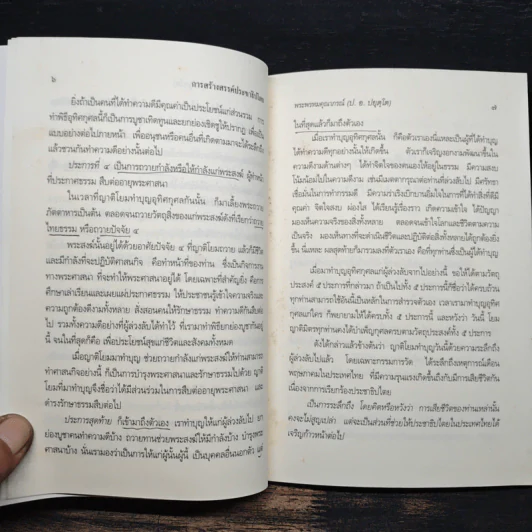 ๖
การสร้างสรรค์ประชาธิปไตย
ยิ่งถ้าเป็นคนที่ได้ทำความดีมีคุณค่าเป็นประโยชน์แก่ส่วนรวม การ
ทำพิธีอุทิศกุศลนี้ก็เป็นการบูชาเทิดทูนและยกย่องเชิดชูให้ปรากฏ เพื่อเป็น
แบบอย่างต่อไปภายหน้า เพื่ออนุชนหรือคนอื่นที่เกิดตามมาจะได้ระลึกถึง
แล้วชวนกันทำความดีอย่างนั้นต่อไป
ประการที่ ๔ เป็นการถวายกำลังหรือให้กำลังแก่พระสงฆ์ ผู้ทำหน้า
ที่ประกาศธรรม สืบต่ออายุพระศาสนา
ในเวลาที่ญาติโยมทำบุญอุทิศกุศลกันนั้น ก็มาเลี้ยงพระถวาย
ภัตตาหารเป็นต้น ตลอดจนถวายวัตถุสิ่งของแก่พระสงฆ์ดังที่เรียกว่าถวาย
ไทยธรรม หรือถวายปัจจัย ๔
พระสงฆ์นั้นอยู่ได้ด้วยอาศัยปัจจัย ๔ ที่ญาติโยมถวาย แล้วก็มีชีวิต
และมีกำลังที่จะปฏิบัติศาสนกิจ คือทำหน้าที่ของท่าน ซึ่งเป็นกิจการ
ทางพระศาสนา ที่จะทำให้พระศาสนาอยู่ได้ โดยเฉพาะที่สำคัญยิ่ง คือการ
ศึกษาเล่าเรียนและเผยแผ่ประกาศธรรม ให้ประชาชนรู้เข้าใจความจริงและ
ความถูกต้องดีงามทั้งหลาย สั่งสอนคนให้รักษาธรรม ทำความดีกันสืบต่อ
ไป รวมทั้งความดีอย่างที่ผู้ล่วงลับได้ทำไว้ ที่เรามาทำพิธีอย่างบูชากันอยู่
นี้ จนในที่สุดก็คือ เพื่อประโยชน์สุขแก่ชีวิตและสังคมทั้งหมด
เมื่อญาติโยมทำบุญ ช่วยถวายกำลังแก่พระสงฆ์ให้ท่านสามารถ
ทำศาสนกิจอย่างนี้ ก็เป็นการบำรุงพระศาสนาและรักษาธรรมไปด้วย ญาติ
โยมที่มาทำบุญจึงชื่อว่าได้มีส่วนร่วมในการสืบต่ออายุพระศาสนา และ
ดำรงรักษาธรรมสืบต่อไป
ประการสุดท้าย ก็เข้ามาถึงตัวเอง เราทำบุญให้แก่ผู้ล่วงลับไป ยก
ย่องบูชาคนที่ทำความดีบ้าง ถวายทานช่วยพระสงฆ์ให้มีกำลังบ้าง บำรุงพระ
ศาสนาบ้าง นั่นเรามองว่าเป็นการให้แก่ผู้นั้นผู้นี้ เป็นบุคคลอื่นนอกตัว แต่
พระพรหมคุณาภรณ์ (ป. อ. ปยุตฺโต)
๗
ในที่สุดแล้วก็มาถึงตัวเอง
เมื่อเราทำบุญอุทิศกุศลนั้น ก็คือตัวเรานี่แหละเป็นผู้ที่ได้ทำบุญ
ได้ทำความดีทุกอย่างนั้นให้เกิดขึ้น ตัวเราก็เจริญงอกงามพัฒนาขึ้นใน
ความดีงามด้านต่างๆ ได้ทำจิตใจของตนเองให้อยู่ในธรรม มีความสงบ
โน้มน้อมไปในความดีงาม เช่นมีเมตตาการุณต่อท่านที่ล่วงลับไป มีศรัทธา
เชื่อมั่นในการทำกรรมดี มีความร่าเริงเบิกบานอิ่มใจในการที่ได้ทำสิ่งที่ดีมี
คุณค่า จิตใจสงบ ผ่องใส ได้เรียนรู้เรื่องราว เกิดความเข้าใจ ได้ปัญญา
มองเห็นความจริงของสิ่งทั้งหลาย ตลอดจนเข้าใจโลกและชีวิตตามความ
เป็นจริง มองเห็นทางที่จะดำเนินชีวิตและปฏิบัติต่อสิ่งทั้งหลายได้ถูกต้องยิ่ง
ขึ้น นี่แหละ ผลสุดท้ายก็มารวมลงที่ตัวเราเอง คือที่ทุกท่านซึ่งเป็นผู้ได้ทำบุญ
เมื่อมาทำบุญอุทิศกุศลแก่ผู้ล่วงลับจากไปอย่างนี้ ขอให้ได้ตามวัตถุ
ประสงค์ ๕ ประการที่กล่าวมา ถ้าเป็นไปทั้ง ๕ ประการนี้ก็ชื่อว่าได้ครบถ้วน
ทุกท่านสามารถใช้อันนี้เป็นหลักในการสำรวจตัวเอง เวลาเรามาทำบุญอุทิศ
กุศลแก่ใคร ก็พยายามให้ได้ครบทั้ง ๕ ประการนี้ และหวังว่า วันนี้ โยม
ญาติมิตรทุกท่านคงได้บำเพ็ญกุศลครบตามวัตถุประสงค์ทั้ง ๕ ประการ
ดังได้กล่าวแล้วข้างต้นว่า ญาติโยมทำบุญวันนี้ด้วยความระลึกถึง
ผู้ล่วงลับไปแล้ว โดยเฉพาะกรรมการวัด ได้ระลึกถึงเหตุการณ์เดือน
พฤษภาคมในประเทศไทย ที่มีความรุนแรงเกิดขึ้นถึงกับมีการเสียชีวิตกัน
เนื่องจากการเรียกร้องประชาธิปไตย
เป็นการระลึกถึง โดยคิดหรือหวังว่า การเสียชีวิตของท่านเหล่านั้น
คงจะไม่สูญเปล่า แต่จะเป็นส่วนที่ช่วยให้ประชาธิปไตยในประเทศไทยได้
เจริญก้าวหน้าต่อไป